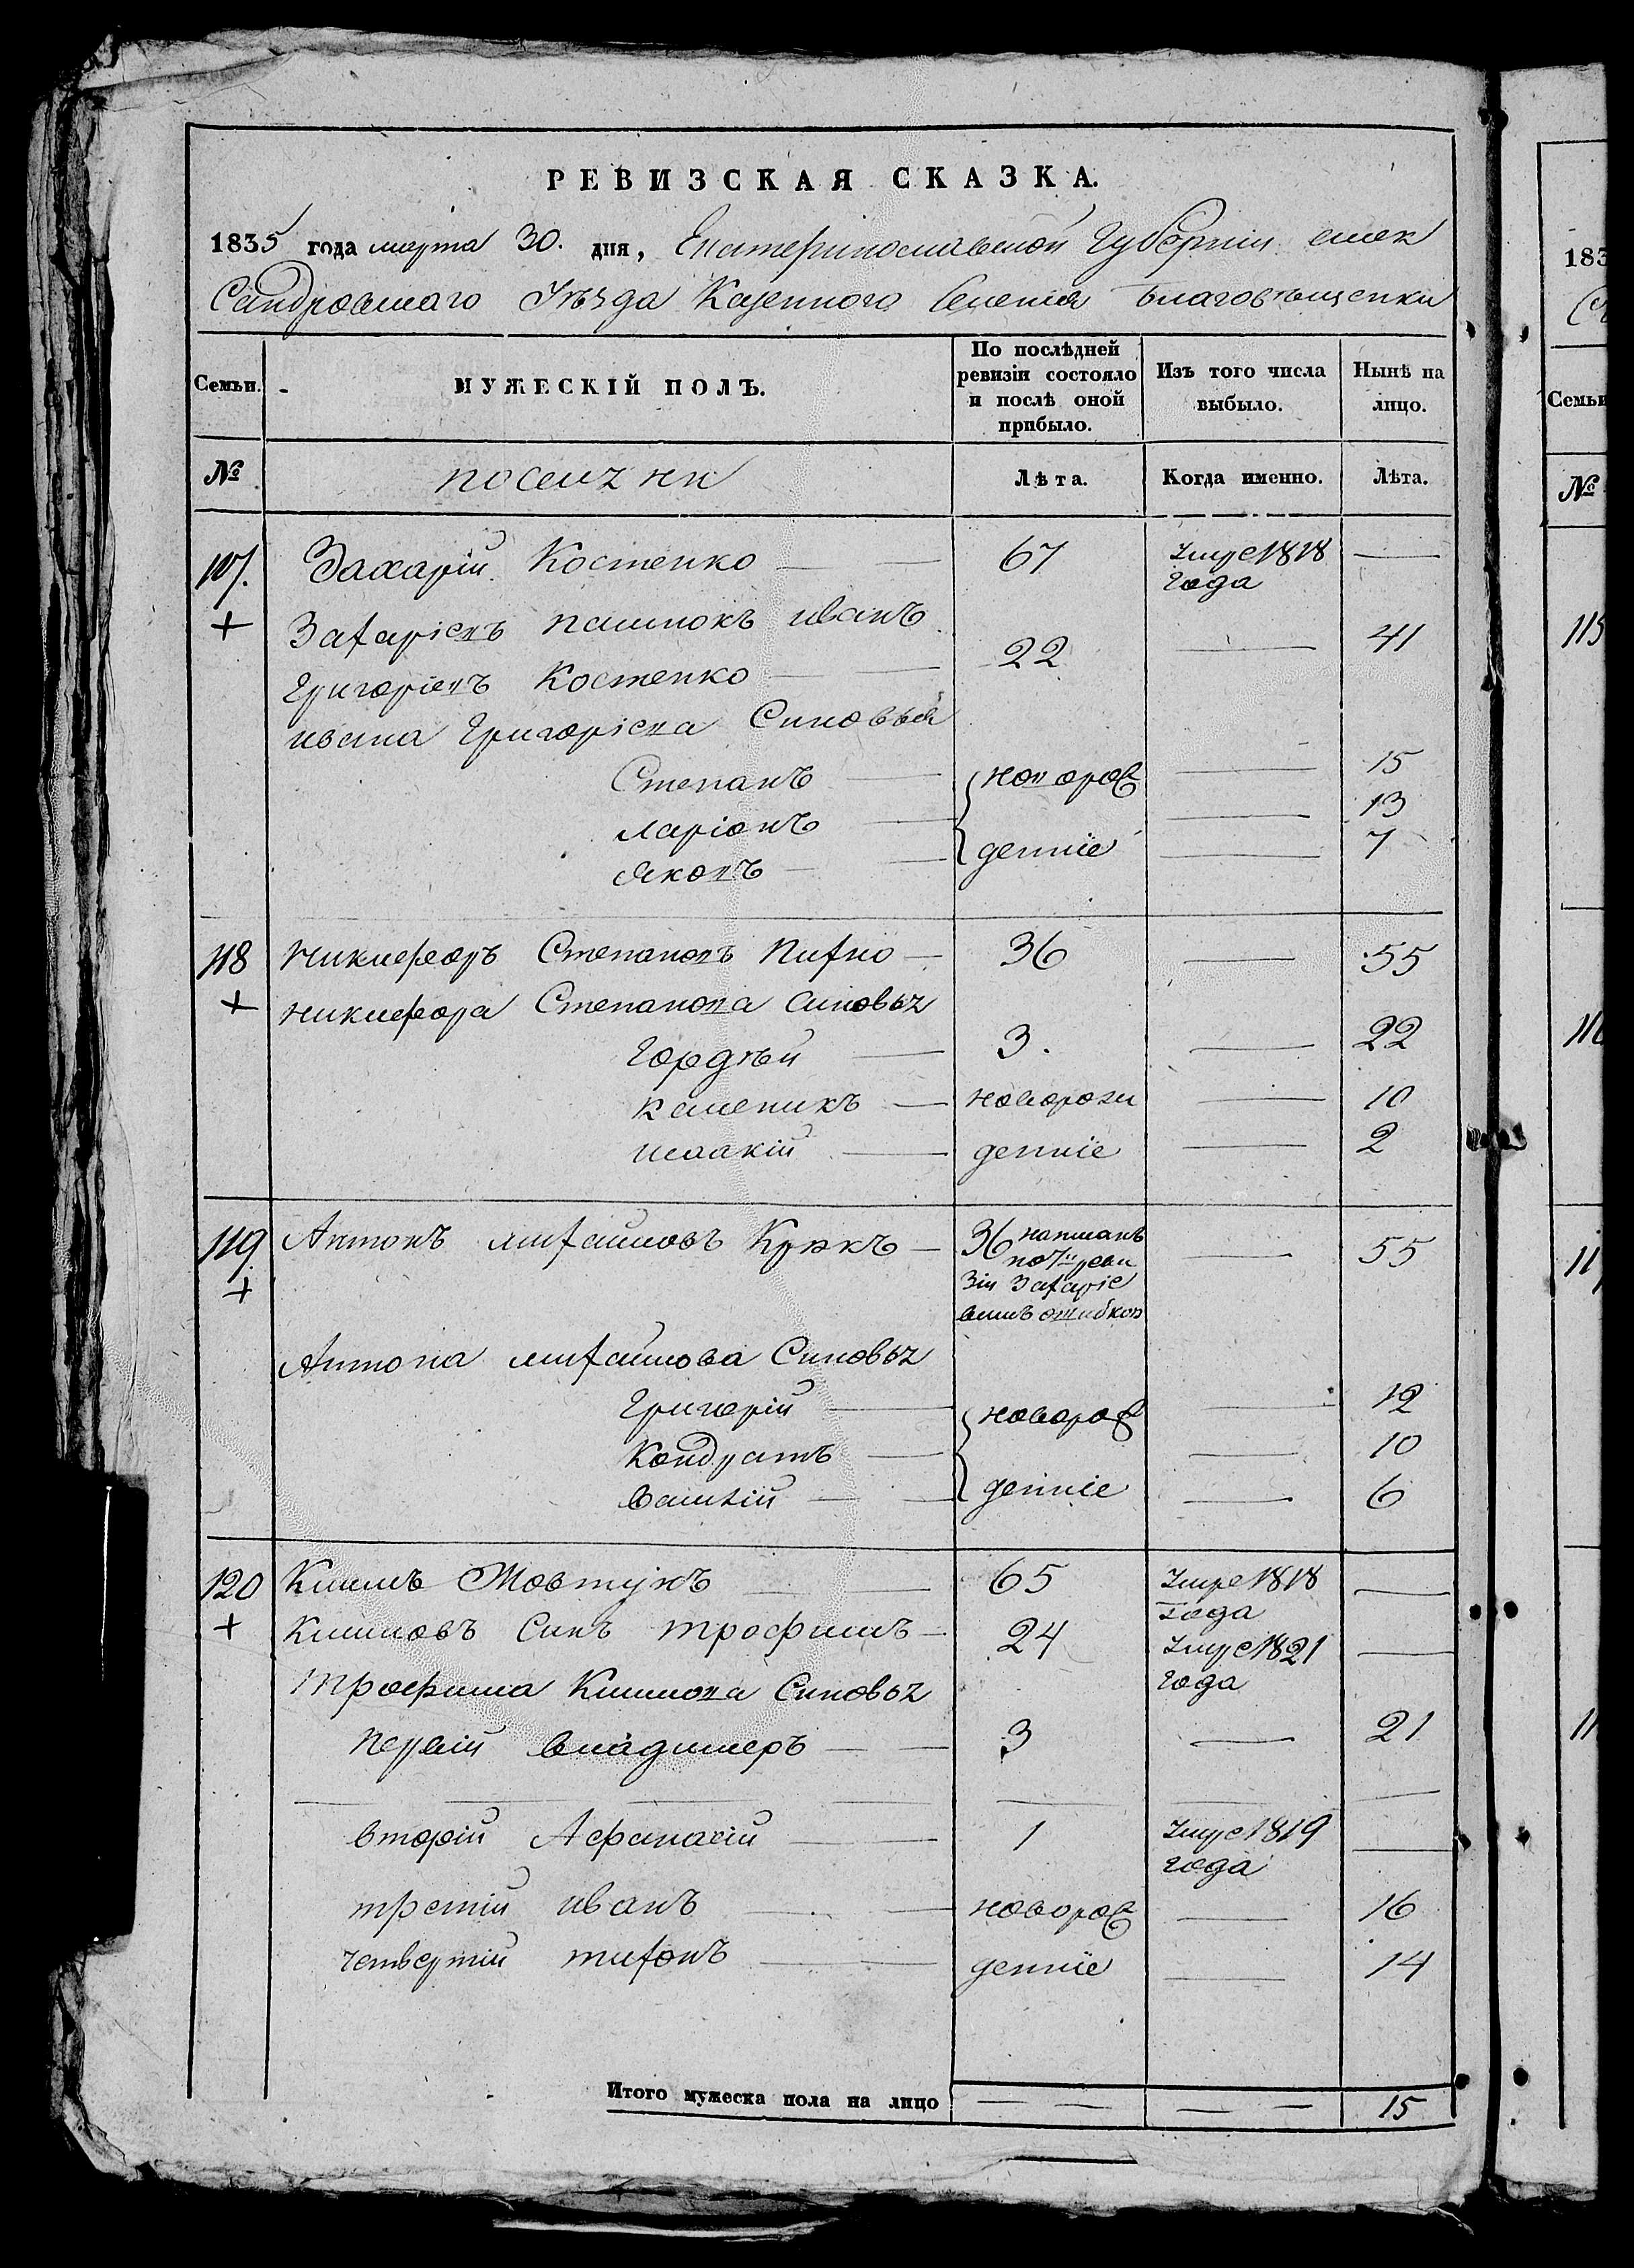 РЕВИЗСКАЯ СКАЗКА.
1835 года марта 30. дня, Екатеринославской Губерніи Алек
Сандровскаго Уѣзда Казенного Селенія Благовѣщенки
Семьи.
МУЖЕСКІЙ ПОЛЪ.
По послѣдней ревизіи состояло и послѣ оной прибыло.
Изъ того числа выбыло.
Нынѣ на лицо.
№
Лѣта.
Когда именно.
Лѣта.
Захарій Костенко 67 Умре 1818 года
+ Захаріевъ Иванъ
Григоріевъ Костенко 22 41
Ивана Григоріева Синовья
Степанъ новорож 15
Ларіонъ 13
Яковъ денніе 7
118 Никифоръ Степановъ Пихно 36 55
+ Никифора Степанова Синовья
Гордѣй 3. 22
новорож 10
Исаакій денніе 2
119 Антонъ Михайловъ 36 написанъ по 7й реви зіи Захаріе вимъ ошибкою 55
+
Антона Михайлова Синовья
Григорій новорож 12
Кондратъ 10
Василій денніе 6
120 Климъ Жовтунъ 65 Умре 1818 года
+ Климовъ Синъ Трофимъ 24 Умре 1821 года
Трофима Климова Синовья
Первій Владимеръ 3 21
Вторій Афанасій 1 Умре 1819 года
третій Иванъ новорож 16
четвертій Тихонъ денніе 14
Итого мужеска пола на лицо 15
183
Семьи
№
115